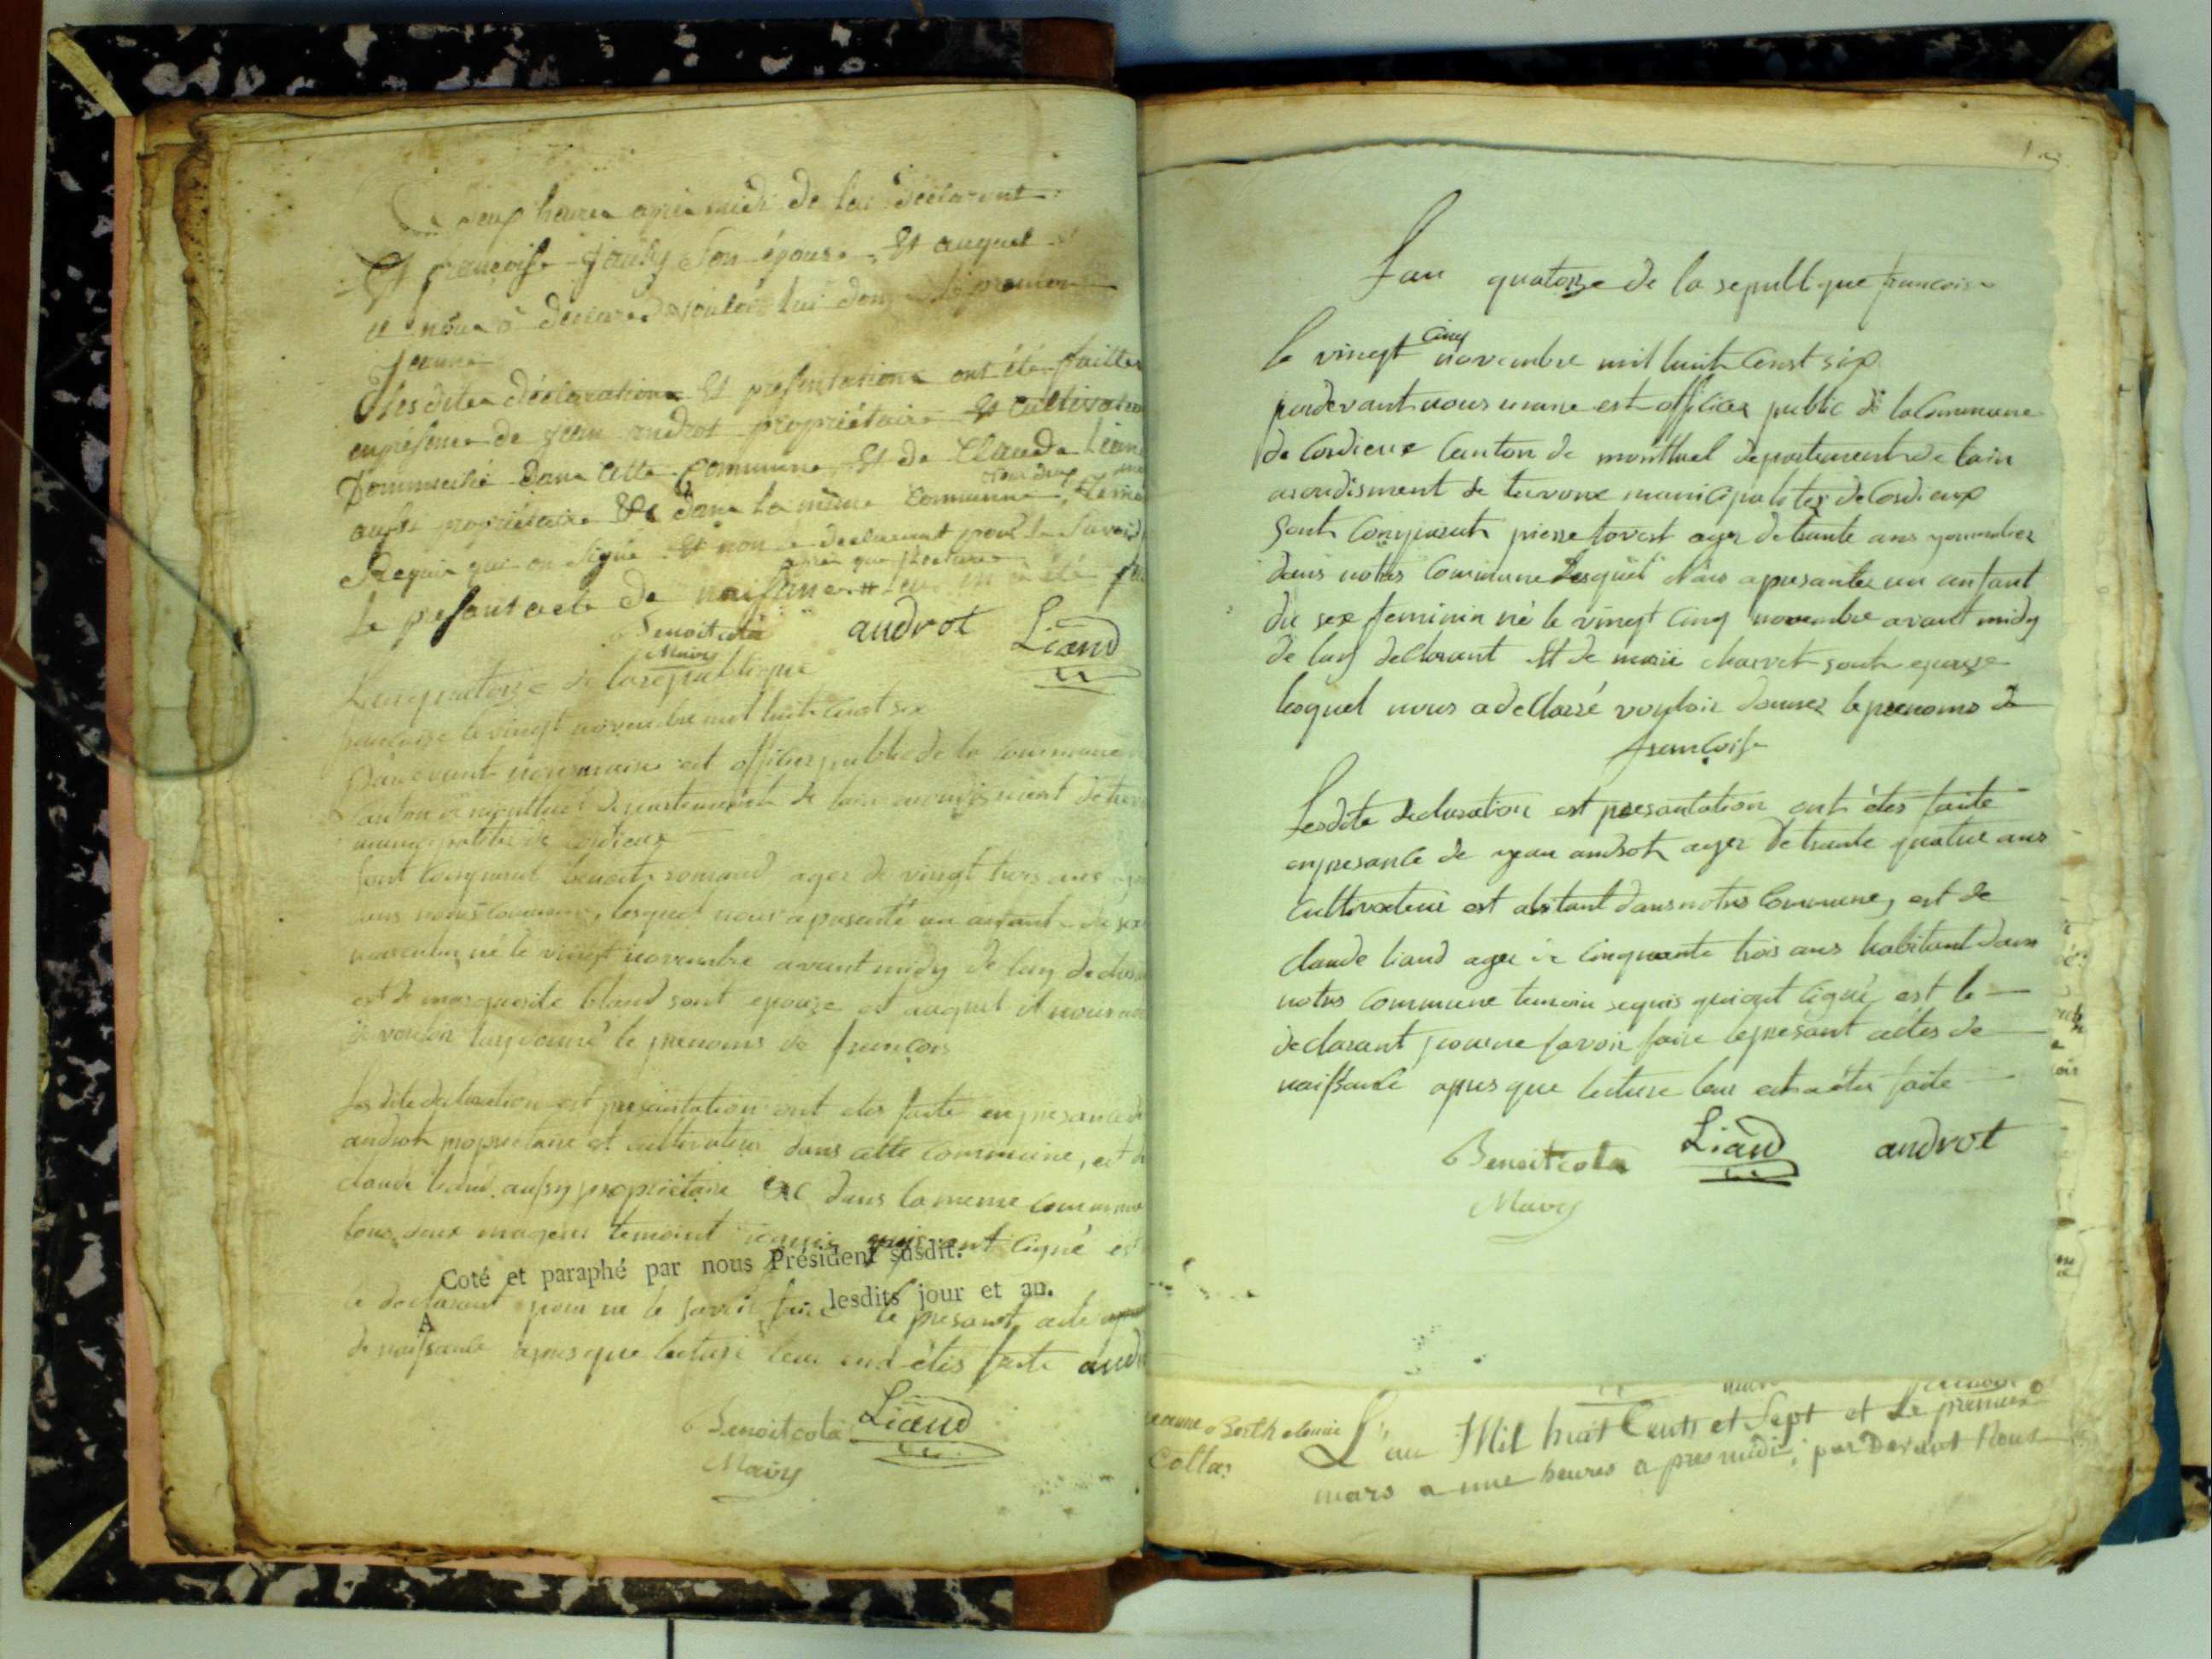 deux heures après midi de lui déclarant
Et françoise jauly Son épouse, Et auquel
il nous a déclaré vouloir lui donner le prénom
Jeanne
Lesdites déclarations Et présentations ont été faittes
en présence de jean androt propriétaire Et Cultivateur
Dommicilié Dans Cette Commune, Et de Claude Liand
aussi propriétaire &c dans la même Commune,
tous deux
Requis qui on signé Et non le declarant pour le Savoir
après que lecture
Le present acte de naissance leur en à été
Benoit cola androt Liand
Mairy
Lan quatorze de la republique
francaise le vingt novembre mil huit Cent six
Pardevant nous maire est officier public de la commune
Canton de montluel departement de lain arondisment de
municipalites de Cordieux
sont Comparut benoit romand ager de vingt trois ans
dans notres Commune, lesquel nous a presenté un anfant du sex
masculin né le vingt novembre avant midy de luy declarant
est de marguerite bland sont epouze et auquel il nous
de vouloir luy donné le prenoms de francois
Les dite declaration est presantation ont etés faite en presance de
androt propriétaire et cultivateur dans cette commune, est de
claude liand aussy propriétaire &c dans la meme commune
tous deux mageur temoint requis qui ont signé est
Coté et paraphé par nous Président susdit.
A lesdits jour et an.
le declarant pour ne le savoir faire le presant acte
de naissance apres que lecture leur end étés faite
Benoit cola Liand
Mairy
Lan quatorze de la republique francoise
Cinq
le vingt novembre mil huit Cent six
pardevant nous maire est officier public de la Commune
de Cordieux Canton de montluel departement de lain
arondisment de trevoux municipalites de Cordieux
Sont Comparut pierre tovest ager de trante ans
dans notres Commune Lesquel Nous a presanter un anfant
du sex feminin né le vingt Cinq novembre avant midy
de luy declarant Et de marie charvet sont epouze
lesquel nous a declarré vouloir donner le prenoms de
francoise
Lesdite declaration est presantation ont étés faite
en presance de jean androt ager de trante quatre ans
Cultivateur est abitant dans notres Commune, est de
claude liand ager de cinquante trois ans habitant dans
notres Commune temoin requis qui ont signé, est le
declarant pour ne savoir faire le presant actes de
naissance apres que lecture leur end étés faite
Benoit cola Liand androt
Mairy
jeanne Berthelemie
Collas
L'an Mil huit Cents et Sept et Le premier
mars a une heures a pres midi; par Devant Nous